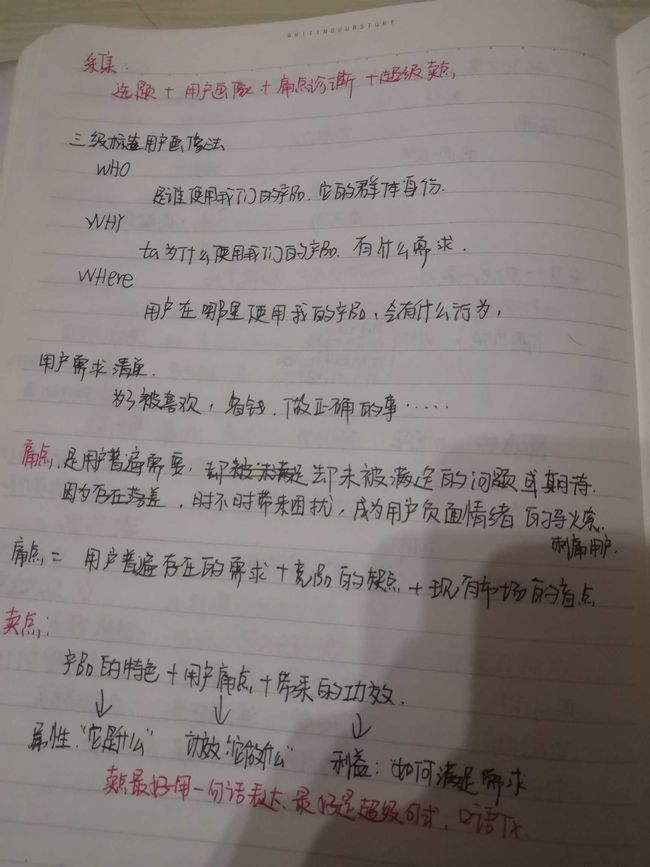 WRITINGOURSTORY
采集:
选题 + 用户画像 + 痛点诊断 + 超级卖点
三级标签用户画像法
WHO
是谁使用我们的产品. 它的群体身份.
WHY
ta为什么使用我们的产品. 有什么需求.
WHere
用户在哪里使用我的产品, 会有什么行为,
用户需求清单.
为了被喜欢, 省钱. 做正确的事……
痛点, 是用户普遍需要, 却未被满足的问题或期待.
因为存在落差, 时不时带来困扰, 成为用户负面情绪的导火索.
刺痛用户.
痛点 = 用户普遍存在的需求 + 竞品的缺点 + 现有市场的盲点
卖点:
产品的特色 + 用户痛点 + 带来的功效.
↓ ↓ ↓
属性: "它是什么" 功效: "它做什么" 利益: 如何满足需求
卖点最好用一句话表达. 最好是超级句式. 口语化.